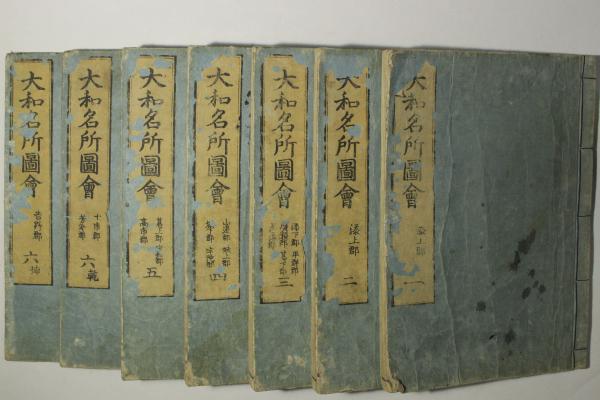 大和名所圖會
添上郡
一
大和名所圖會
添上郡
二
大和名所圖會
添下郡 平群郡
廣瀬郡 葛下郡
三
大和名所圖會
山邊郡 城上郡
四
大和名所圖會
葛上郡
高市郡
五
大和名所圖會
十市郡
六乾
大和名所圖會
吉野郡
六坤